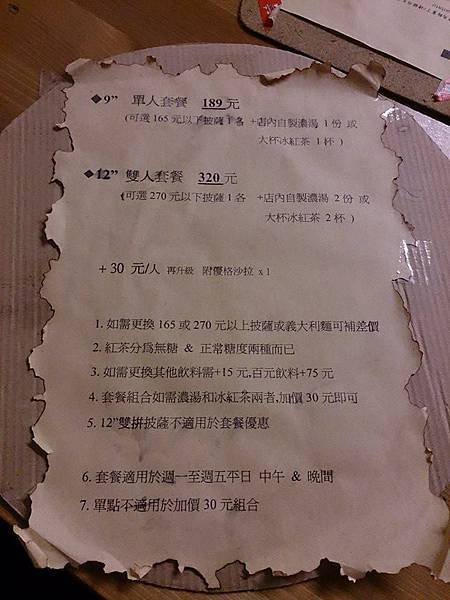 ◆9” 單人套餐 189元
(可選 165 元以下披薩 1 各 +店內自製濃湯 1 份 或
大杯冰紅茶 1 杯 )
◆12” 雙人套餐 320 元
(可選 270 元以下披薩 1 各 +店內自製濃湯 2 份 或
大杯冰紅茶 2 杯 )
+ 30 元/人 再升級 附優格沙拉 x 1
1. 如需更換 165 或 270 元以上披薩或義大利麵可補差價
2. 紅茶分為無糖 & 正常糖度兩種而已
3. 如需更換其他飲料需+15 元,百元飲料+75 元
4. 套餐組合如需濃湯和冰紅茶兩者,加價 30 元即可
5. 12”雙拼披薩不適用於套餐優惠
6. 套餐適用於週一至週五平日 中午 & 晚間
7. 單點不適用於加價 30 元組合